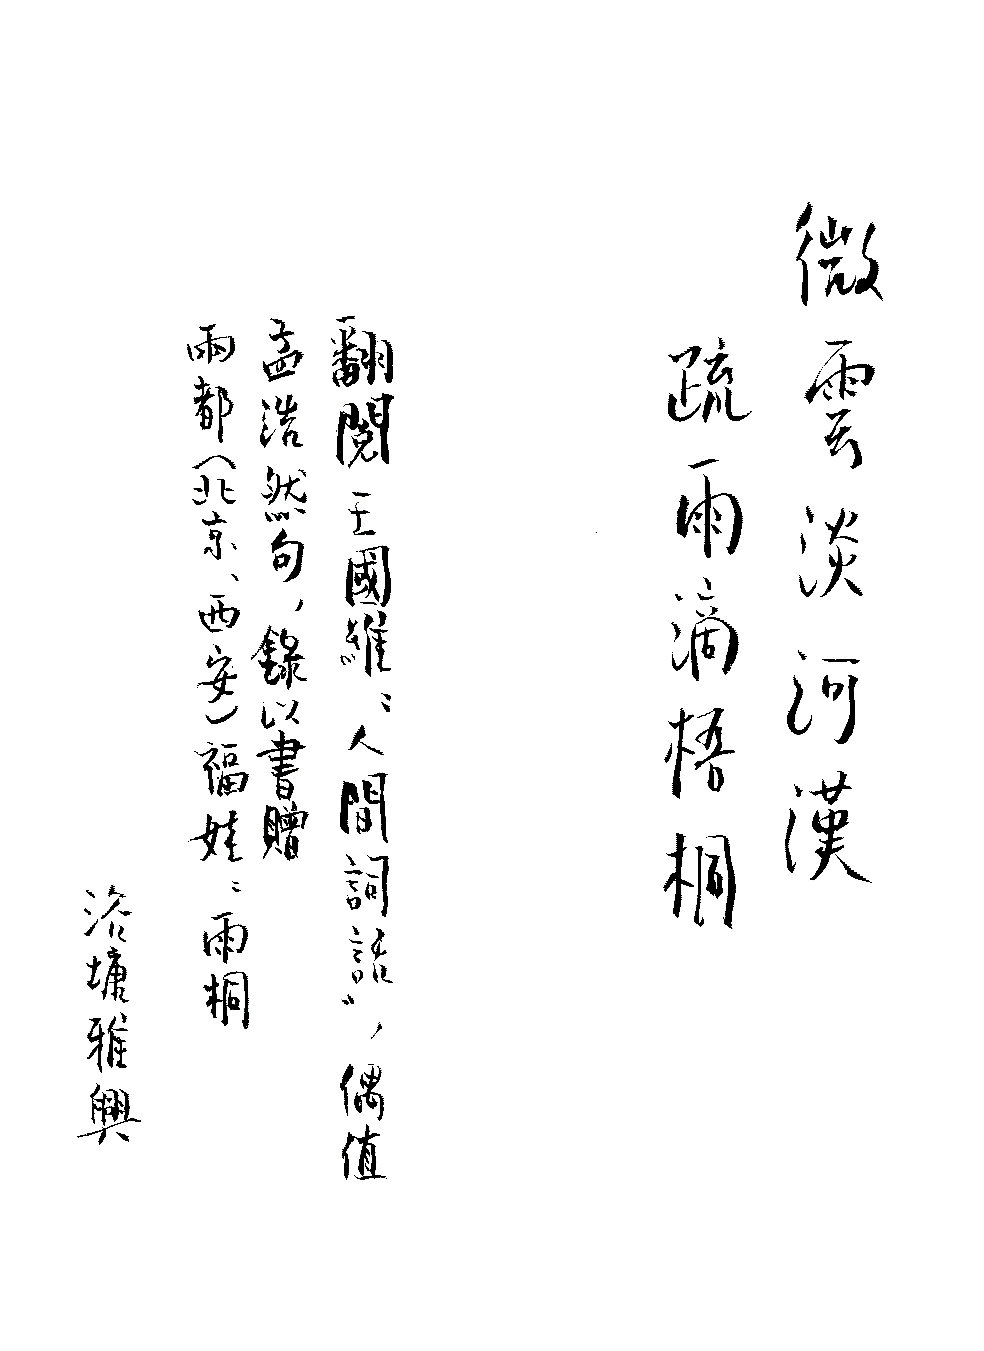 微雲淡河漢
疏雨滴梧桐
翻閱王國維“人間詞話”，偶值
孟浩然句，錄以書贈
兩都（北京、西安）福娃：雨桐
洛墉雅興